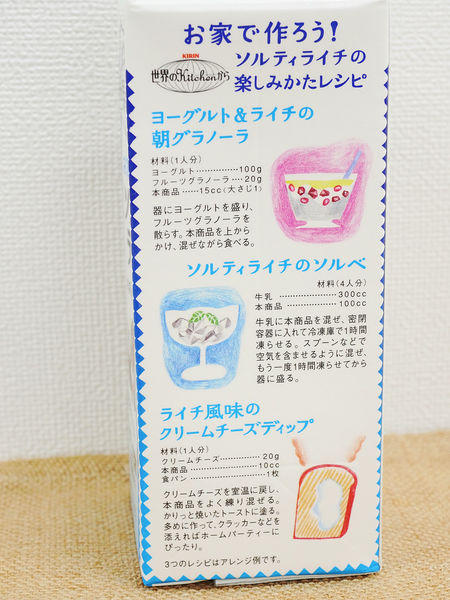 お家で作ろう!
KIRIN
世界のKitchenから
ソルティライチの
楽しみかたレシピ
ヨーグルト&ライチの
朝グラノーラ
材料(1人分)
ヨーグルト……………100g
フルーツグラノーラ….20g
本商品……15cc(大さじ1)
器にヨーグルトを盛り、
フルーツグラノーラを
散らす。本商品を上から
かけ、混ぜながら食べる。
ソルティライチのソルベ
材料(4人分)
牛乳 …………………300cc
本商品 ………………100cc
牛乳に本商品を混ぜ、密閉
容器に入れて冷凍庫で1時間
凍らせる。スプーンなどで
空気を含ませるように混ぜ、
もう一度1時間凍らせてから
器に盛る。
ライチ風味の
クリームチーズディップ
材料(1人分)
クリームチーズ……………20g
本商品………………………10cc
食パン………………………1枚
クリームチーズを室温に戻し、
本商品をよく練り混ぜる。
かりっと焼いたトーストに塗る。
多めに作って、クラッカーなどを
添えればホームパーティーに
ぴったり。
3つのレシピはアレンジ例です。